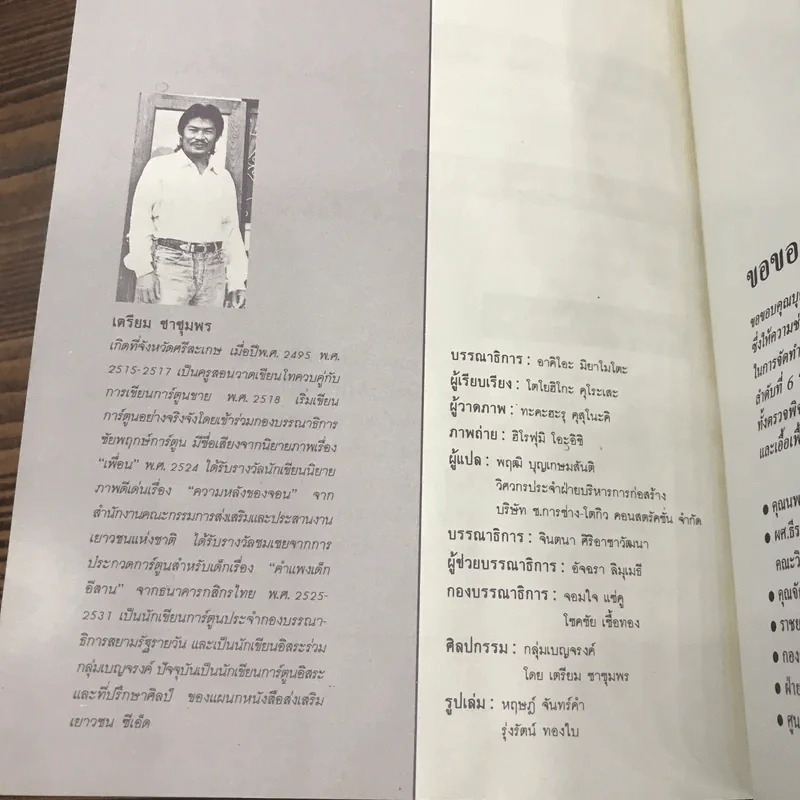 เตรียม ชาชุมพร
เกิดที่จังหวัดศรีสะเกษ เมื่อปีพ.ศ. 2495 พ.ศ.
2515-2517 เป็นครูสอนวาดเขียนโทควบคู่กับ
การเขียนการ์ตูนขาย พ.ศ. 2518 เริ่มเขียน
การ์ตูนอย่างจริงจังโดยเข้าร่วมกองบรรณาธิการ
ชัยพฤกษ์การ์ตูน มีชื่อเสียงจากนิยายภาพเรื่อง
“เพื่อน” พ.ศ. 2524 ได้รับรางวัลนักเขียนนิยาย
ภาพดีเด่นเรื่อง “ความหลังของจอน” จาก
สำนักงานคณะกรรมการส่งเสริมและประสานงาน
เยาวชนแห่งชาติ ได้รับรางวัลชมเชยจากการ
ประกวดการ์ตูนสำหรับเด็กเรื่อง “คำแพงเด็ก
อีสาน” จากธนาคารกสิกรไทย พ.ศ. 2525-
2531 เป็นนักเขียนการ์ตูนประจำกองบรรณา-
ธิการสยามรัฐรายวัน และเป็นนักเขียนอิสระร่วม
กลุ่มเบญจรงค์ ปัจจุบันเป็นนักเขียนการ์ตูนอิสระ
และที่ปรึกษาศิลป์ ของแผนกหนังสือส่งเสริม
เยาวชน ซีเอ็ด
บรรณาธิการ : อาคิโอะ มิยาโมโตะ
ผู้เรียบเรียง : โตโยฮิโกะ คุโระเสะ
ผู้วาดภาพ : ทะคะฮะรุ คุสุโนะคิ
ภาพถ่าย : ฮิโรฟุมิ โอะอิชิ
ผู้แปล : พฤฒิ บุญเกษมสันติ
วิศวกรประจำฝ่ายบริหารการก่อสร้าง
บริษัท ช.การช่าง-โตกิว คอนสตรัคชั่น จำกัด
บรรณาธิการ : จินตนา ศิริอาชาวัฒนา
ผู้ช่วยบรรณาธิการ : อัจฉรา ลิมุเมธี
กองบรรณาธิการ : จอมใจ แซ่คู
โชคชัย เชื้อทอง
ศิลปกรรม : กลุ่มเบญจรงค์
โดย เตรียม ชาชุมพร
รูปเล่ม : หฤษฎ์ จันทร์คำ
รุ่งรัตน์ ทองใบ
ขอขอ
ขอขอบคุณบุ
ซึ่งให้ความช่
ในการจัดทำ
ลำดับที่ 6
ทั้งตรวจพิจ
และเอื้อเฟื้
● คุณนพ
● ผศ.ธีร
คณะวิ
● คุณจั
● ราชย
● กอง
● ฝ่าย
● ศูน